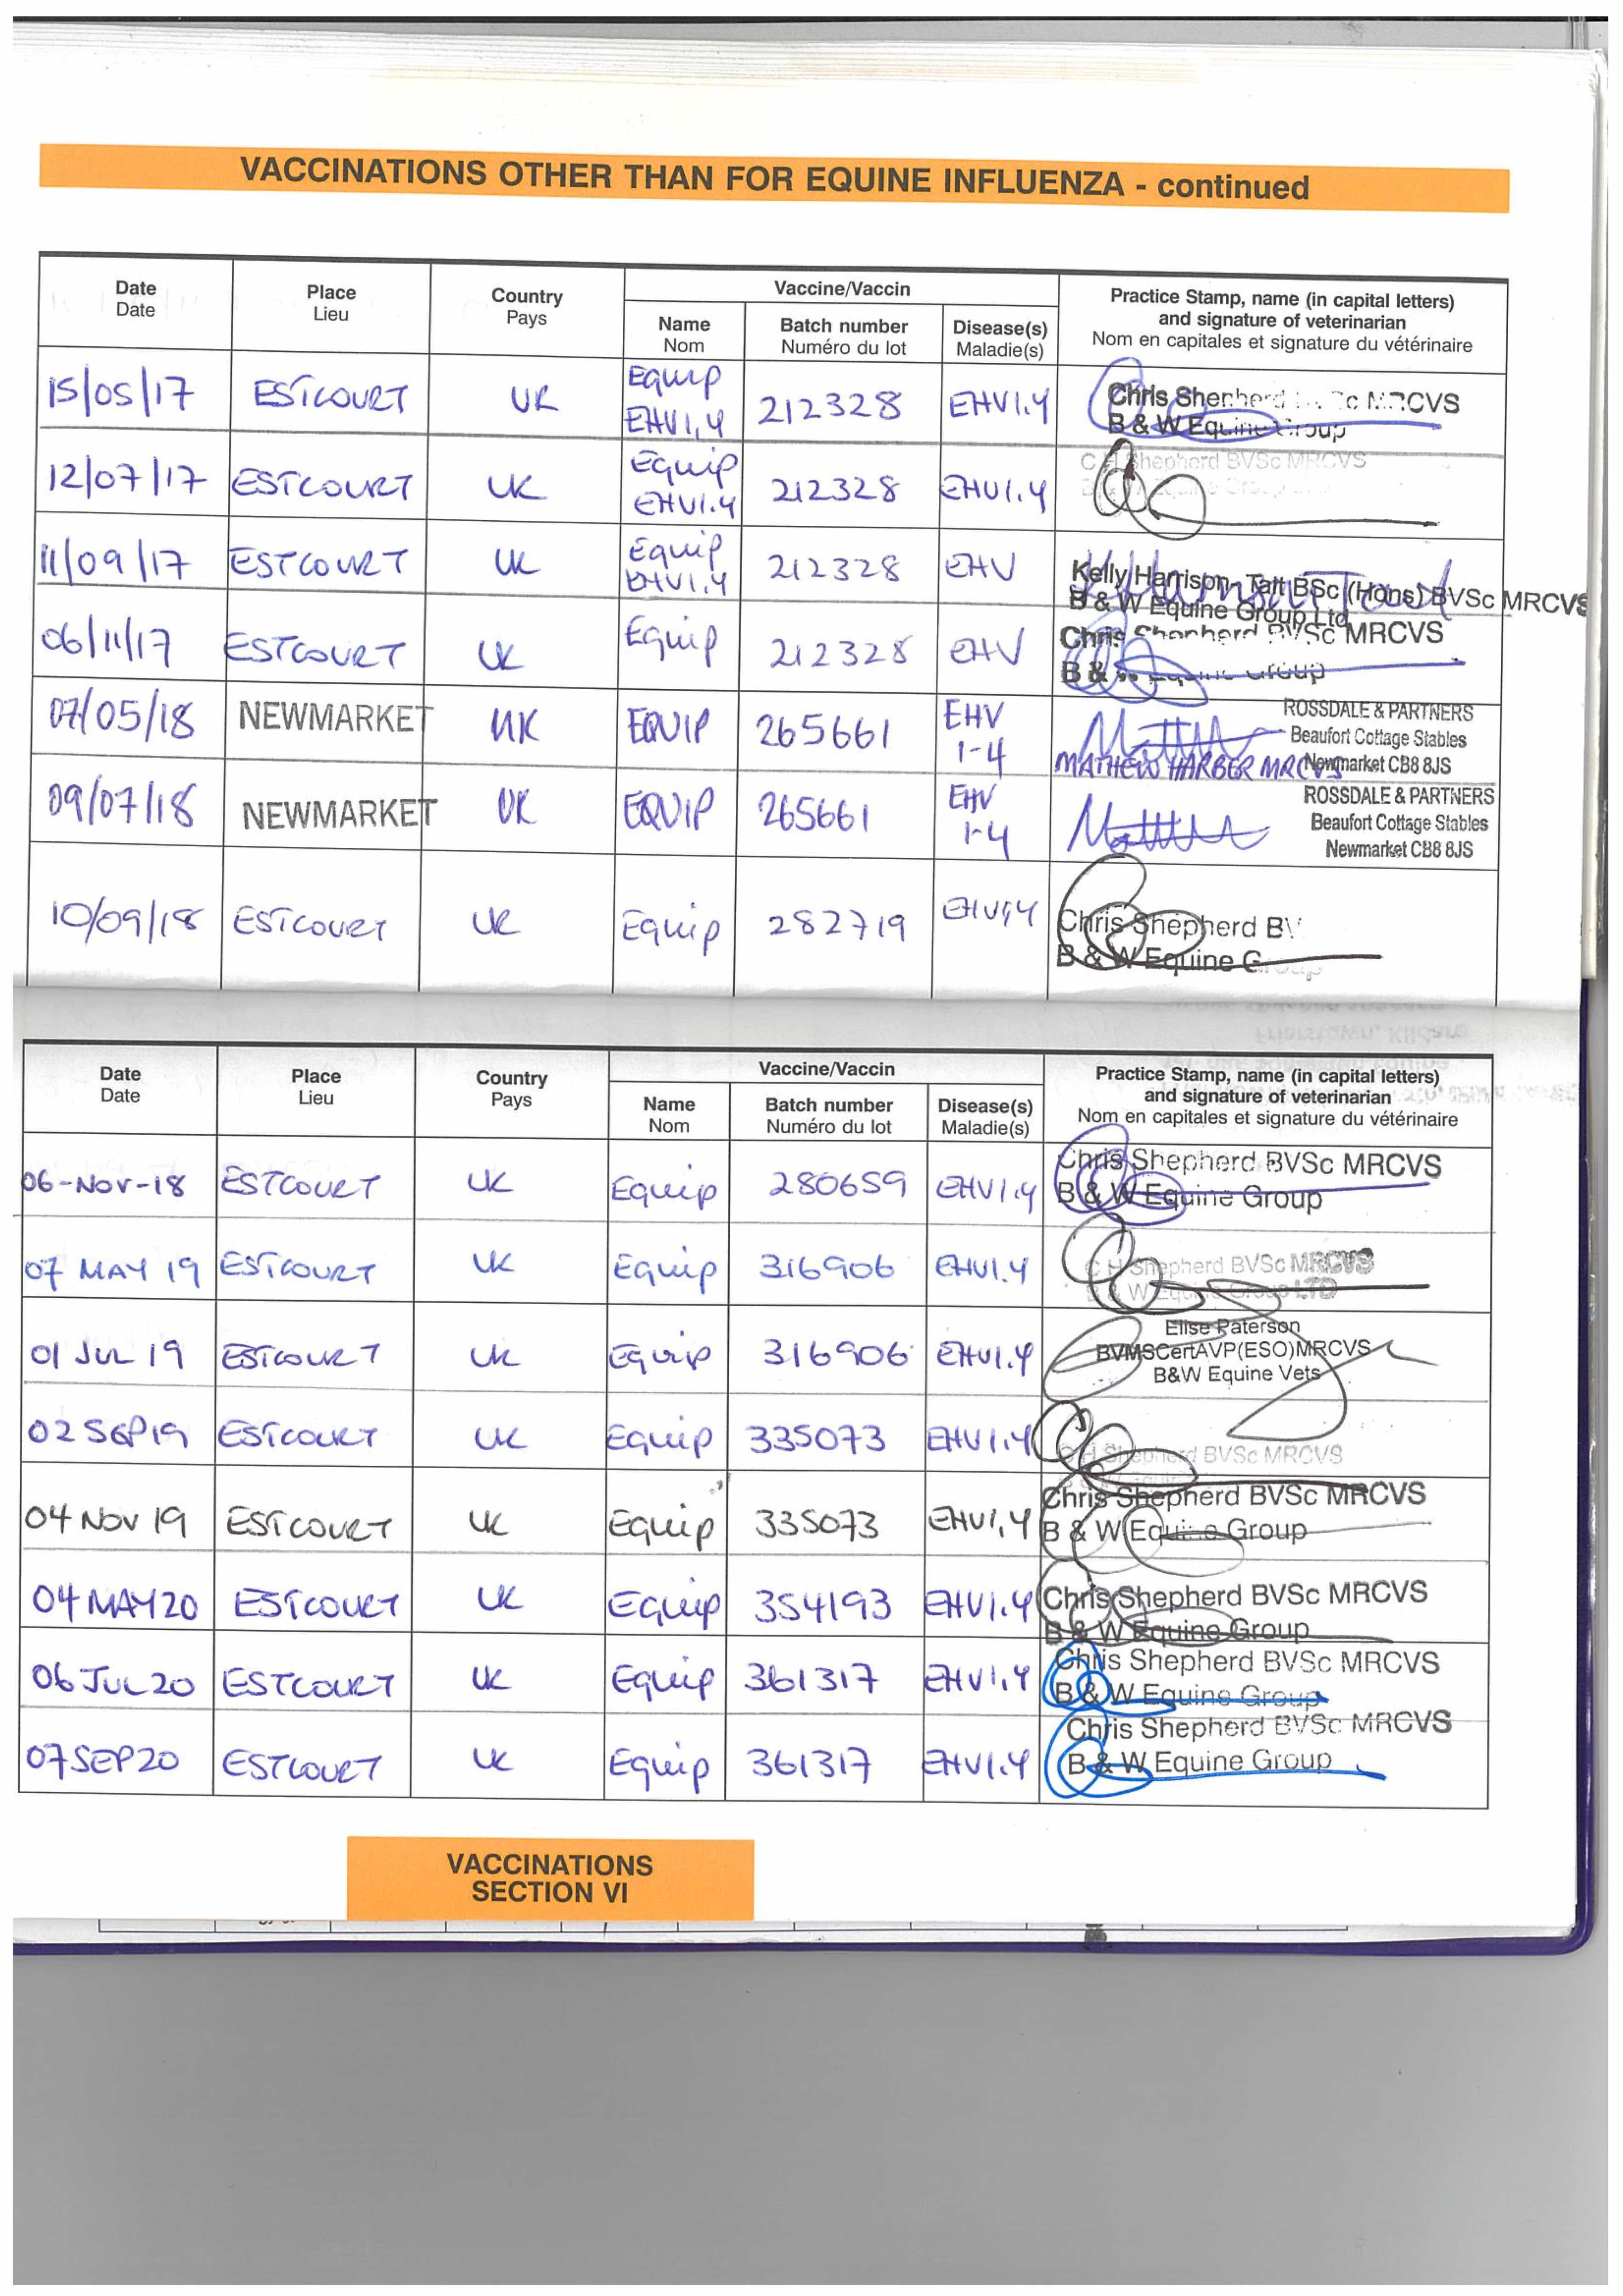 VACCINATIONS OTHER THAN FOR EQUINE INFLUENZA - continued
Date Place Country Vaccine/Vaccin Practice Stamp, name (in capital letters)
Date Lieu Pays Name Batch number Disease(s) and signature of veterinarian
Nom Numéro du lot Maladie(s) Nom en capitales et signature du vétérinaire
15/05/17 ESTCOURT UK Equip EHV1,4 212328 EHV1.4 Chris MRCVS
B & W Equine Group
12/07/17 ESTCOURT UK Equip EHV1.4 212328 EHV1.4 C H Shepherd BVSc MRCVS
11/09/17 ESTCOURT UK Equip EHV1,4 212328 EHV Kelly Harrison- Tait BSc (Hons) BVSc MRCVS
B & W Equine Group Ltd
06/11/17 ESTCOURT UK Equip 212328 EHV Chris Shepherd BVSc MRCVS
B & Group
07/05/18 NEWMARKET UK EQUIP 265661 EHV 1-4 ROSSDALE & PARTNERS
Beaufort Cottage Stables
MATHEW HARBER MRCVS Newmarket CB8 8JS
09/07/18 NEWMARKET UK EQUIP 265661 EHV 1-4 ROSSDALE & PARTNERS
Beaufort Cottage Stables
Newmarket CB8 8JS
10/09/18 ESTCOURT UK Equip 282719 EHV1,4 Chris Shepherd BV
B & W Equine Group
Date Place Country Vaccine/Vaccin Practice Stamp, name (in capital letters)
Date Lieu Pays Name Batch number Disease(s) and signature of veterinarian
Nom Numéro du lot Maladie(s) Nom en capitales et signature du vétérinaire
06-NOV-18 ESTCOURT UK Equip 280659 EHV1.4 Chris Shepherd BVSc MRCVS
B & W Equine Group
07 MAY 19 ESTCOURT UK Equip 316906 EHV1.4 C H Shepherd BVSc MRCVS
B & W Equine Group LTD
01 JUL 19 ESTCOURT UK Equip 316906 EHV1.4 Elise Paterson
BVMSCertAVP(ESO)MRCVS
B&W Equine Vets
02 SEP 19 ESTCOURT UK Equip 335073 EHV1.4 C H Shepherd BVSc MRCVS
04 NOV 19 ESTCOURT UK Equip 335073 EHV1,4 Chris Shepherd BVSc MRCVS
B & W Equine Group
04 MAY 20 ESTCOURT UK Equip 354193 EHV1.4 Chris Shepherd BVSc MRCVS
B & W Equine Group
06 JUL 20 ESTCOURT UK Equip 361317 EHV1.4 Chris Shepherd BVSc MRCVS
B & W Equine Group
07 SEP 20 ESTCOURT UK Equip 361317 EHV1.4 Chris Shepherd BVSc MRCVS
B & W Equine Group
VACCINATIONS
SECTION VI